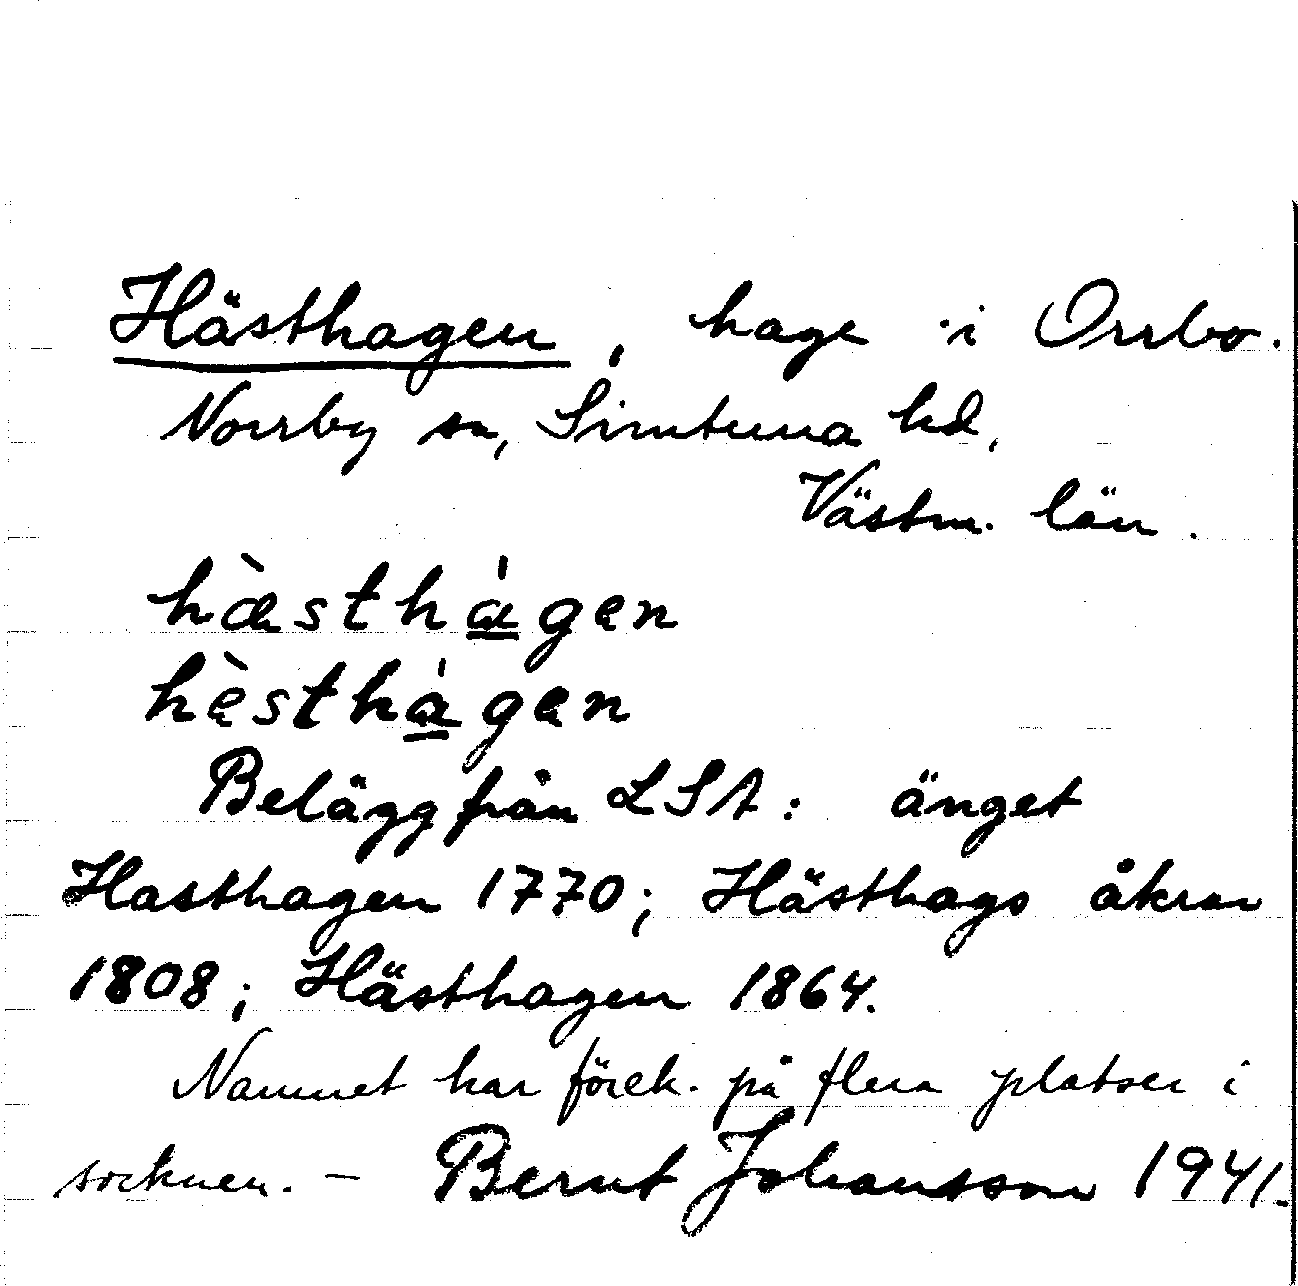 Hästhagen, hage i Orrbo.
Norrby sn, Simtuna hd,
Västm. län.
hæ̀sthàgen
hèsthàgen
Belägg från LSA: änget
Hasthagen 1770; Hästhags åkrar
1808; Hästhagen 1864.
Namnet har förek. på flera platser i
socknen. – Bernt Johansson 1941.